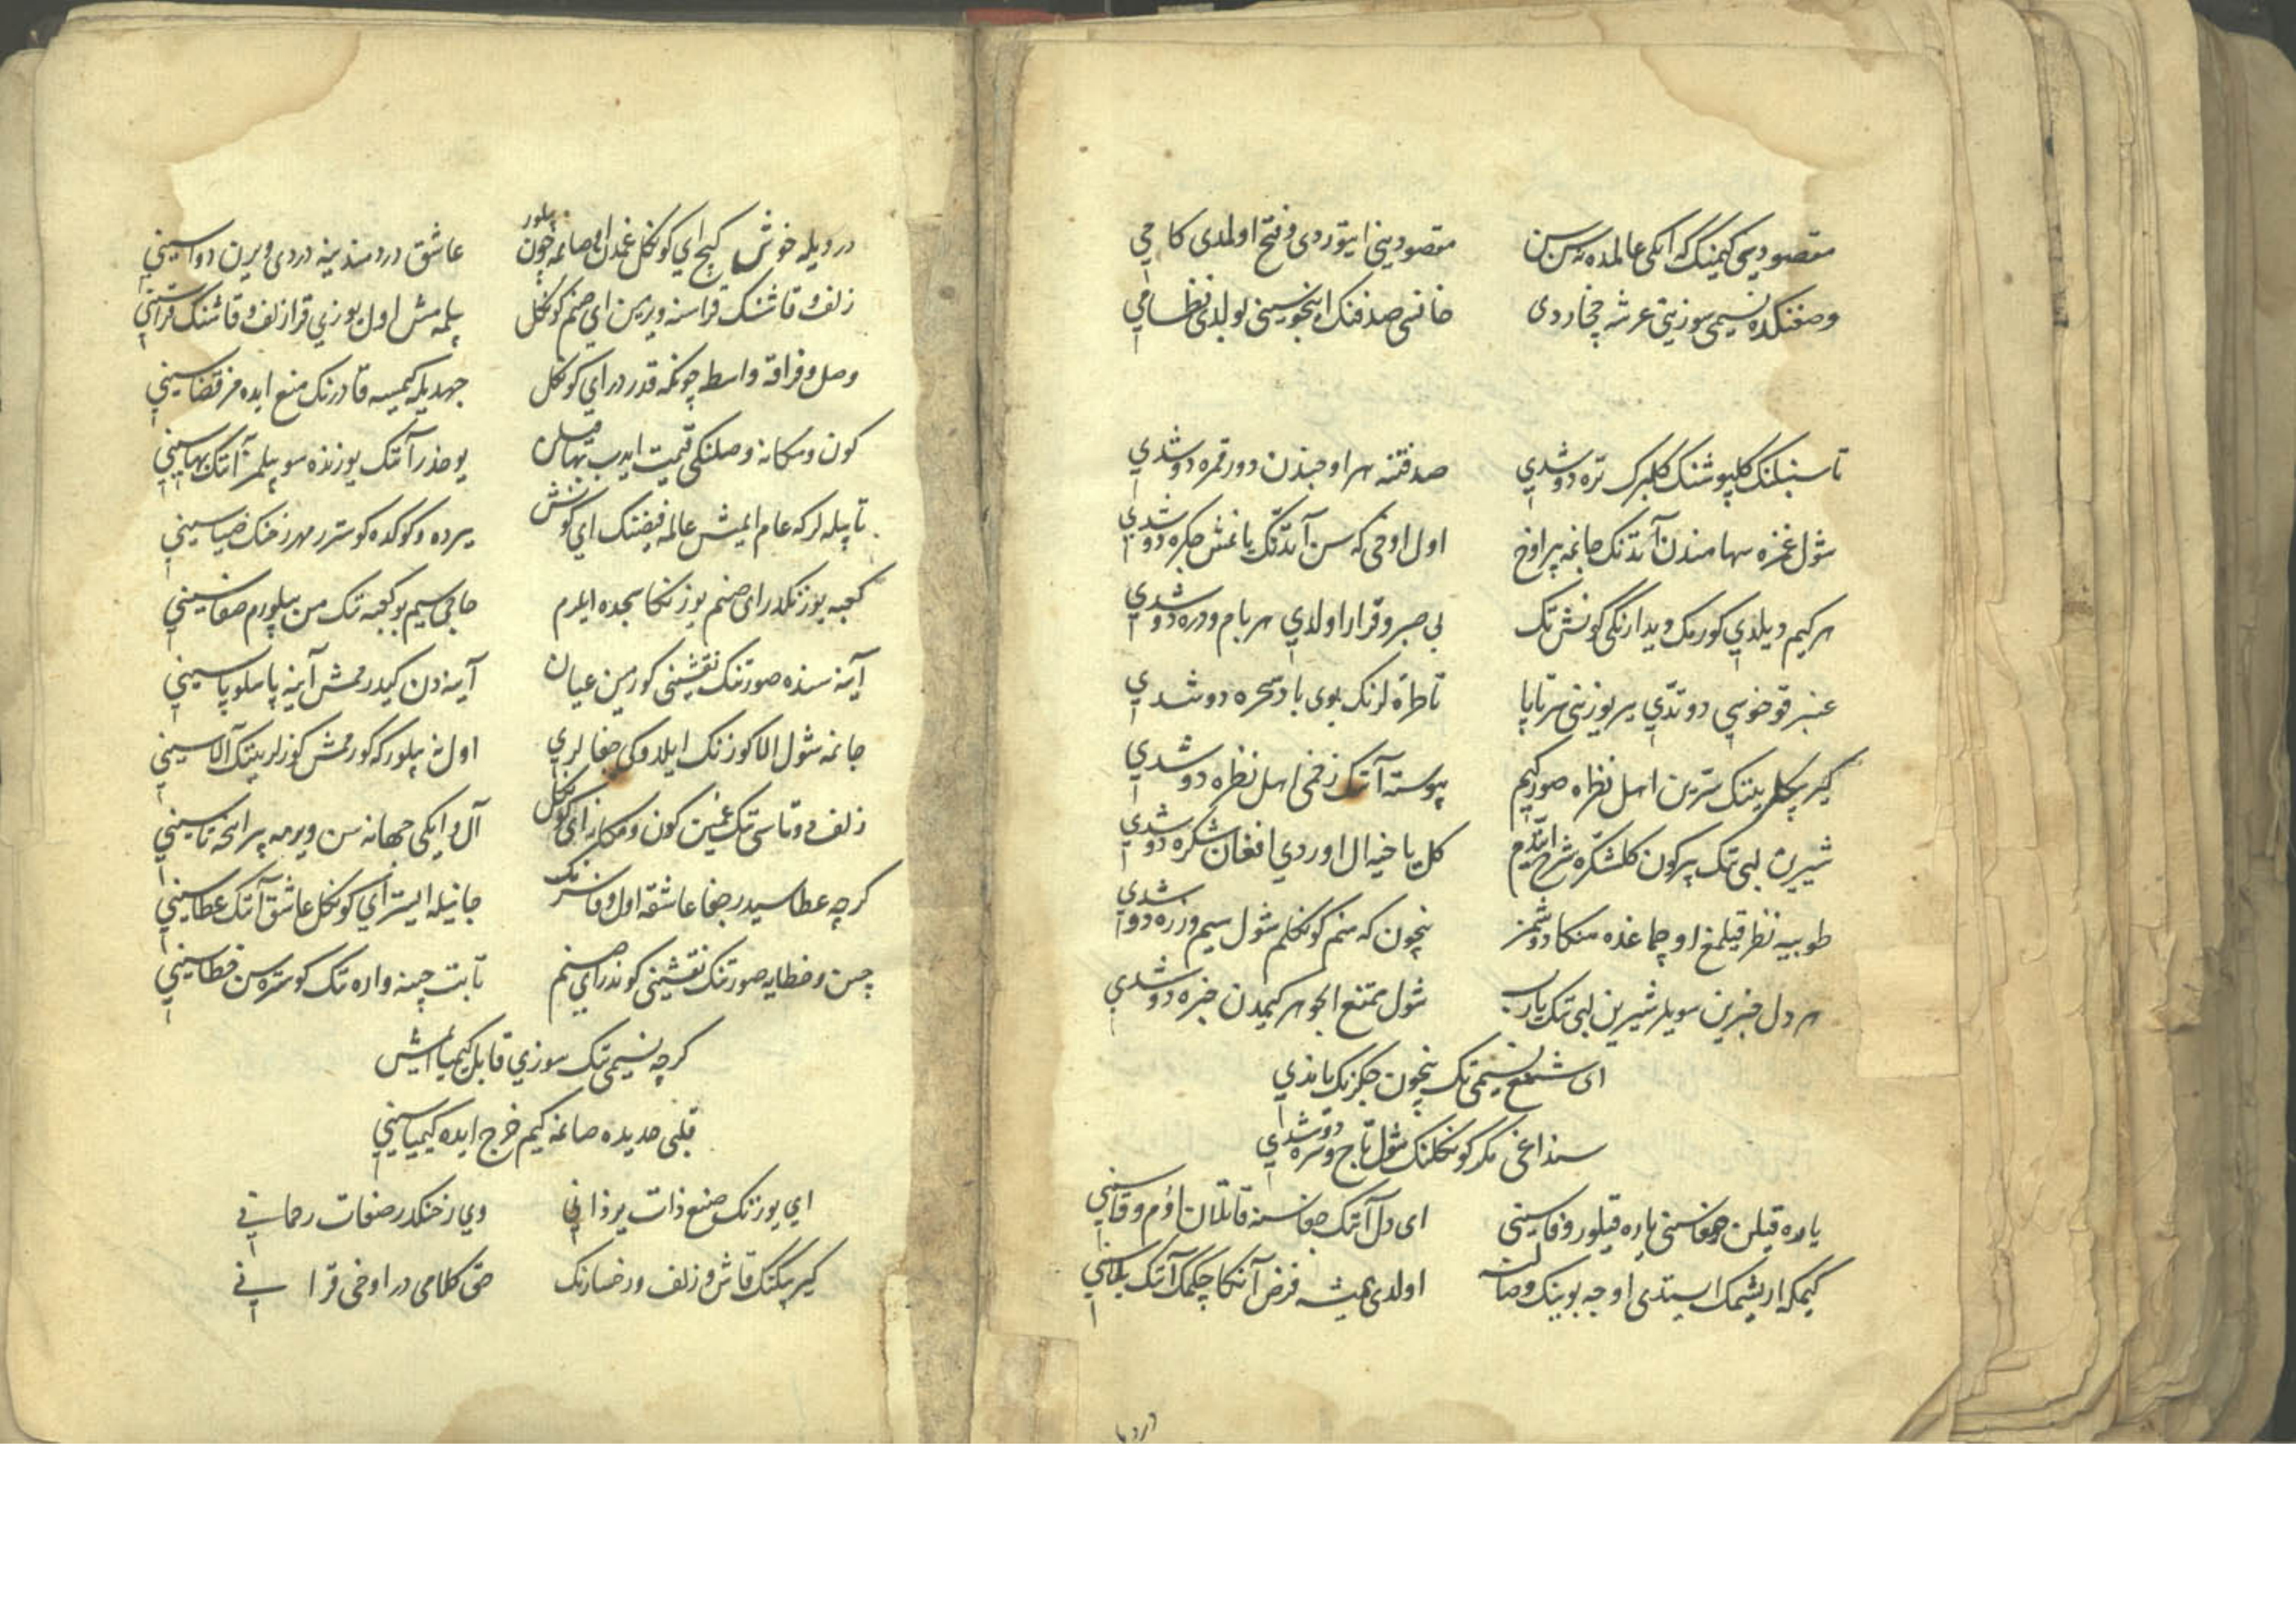 مقصود یمی کیمینک که ایکی عالمده سن سن مقصودینی ایتوردی و فتح اولمدی کامی
وصفنکده نسیمی سوزینی عرشه چخاردی خانسی صدفنک اینجوسینی لولدی نظامی
تا سنبلنک کلپوشنک کلبرک تره دوشدی صد فتنه هر اوجندن دور قمره دوشدی
شول غمزه سهامندن آتدنک جانمه بر اوخ اول اوخی که سن آتدنک یانمش جکره دوشدی
هر کیم دیلدی کورمک دیدارنکی کونش تک بی صبر و قرار اولدی هر بام و دره دوشدی
عنبر قوخوسی دوتدی یر یوزینی سرتاپا تا طره لرنک بوی باد سحره دوشدی
کیرپیکلرینک سرین اهل نظره صوردیم پیوسته آنک زخمی اهل نظره دوشدی
شیرین لبی تک بر کون کلشکره شرح ایتدم کل یا خیال اوردی افغان شکره دوشدی
طوبییه نظر قیلمغ اوچماغده منکا دوشمز نچون که منم کونکلم شول سیم و زره دوشدی
هر دل خبرین سویلر شیرین لبی تک یارب شول ممتنع الجوهر کیمدن خبره دوشدی
ای شمع نسیمی تک نچون جکرنک یاندی
سنداغی مکر کونکلنک شول تاج وسره دوشدی
یارده قیلن جفاسنی یارده قیلور وفاسینی ای دل آنک جفاسنه قاتلان اوم وفاسینی
کیمکه اریشمک استدی اوجه بوینک وصالنه اولدی همیشه فرض آنکا چکمک آنک بلاسینی
دردیله خوش کیج ای کونکل غمدن اوصانمه چون بیلور عاشق دردمندینه دردی ویرن دواسینی
زلف و قاشنک قراسنه ویرمین ای صنم کونکل بیلمه مش اول یوزی قرا زلف و قاشنک قراسینی
وصل و فراقه واسطه چونکه قدر در ای کونکل جهدیله کیمسه قادرنک منع ایده مز قضاسینی
کون و مکانه وصلنکی قیمت ایدب بها قیلن یوخدر آنک یوزنده سو بیلمز آنک بهاسینی
تا بیله لر که عام ایمش عالمه فیضنک ای کونش یرده و کوکده کوستر مهر رخنک ضیاسینی
کعبه یوزنکدر ای صنم یوزنکا سجده ایلرم حاجی سیم بو کعبه تک من بیلورم صفاسینی
آینه سنده صورتنک نقشینی کورمین عیان آینه دن کیدرمه مش آینه پاسلو پاسینی
جانمه شول الا کوزنک ایلدوکی جفالری اول نه بیلور که کورممش کوزلرینک آلاسینی
زلف دوتاسی تک غمین کون و مکانه ای کونکل آل و ایکی جهانه سن ویرمه بر انجه تاسینی
کرچه عطاسیدر جفا عاشقه اول وفاسزنک جانیله ایستر ای کونکل عاشق آنک عطاسینی
چین و خطایه صورتنک نقشینی کوندر ای صنم تا بت چینه واره تک کوستره سن خطاسینی
کرچه نسیمی تک سوزی قابل کیمیا ایمش
قلبی حدیده صانمه کیم خرج ایده کیمیاسینی
ای یوزنک صنع ذات یزدانی وی رخنکدر صفات رحمانی
کیرپیکنک قاش و زلف و رخسارنک حق کلامی در اوخی قرانی